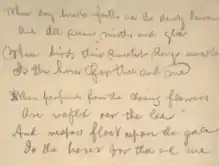 When day breaks forth o'er the dewy lawn
And all seem mirth and glee
When birds their sweetest songs
Is the hour for thee and me
When perfumes from the closing flowers
Are wafted o'er the lea
And vespers float upon the gale
Is the hour for thee & me